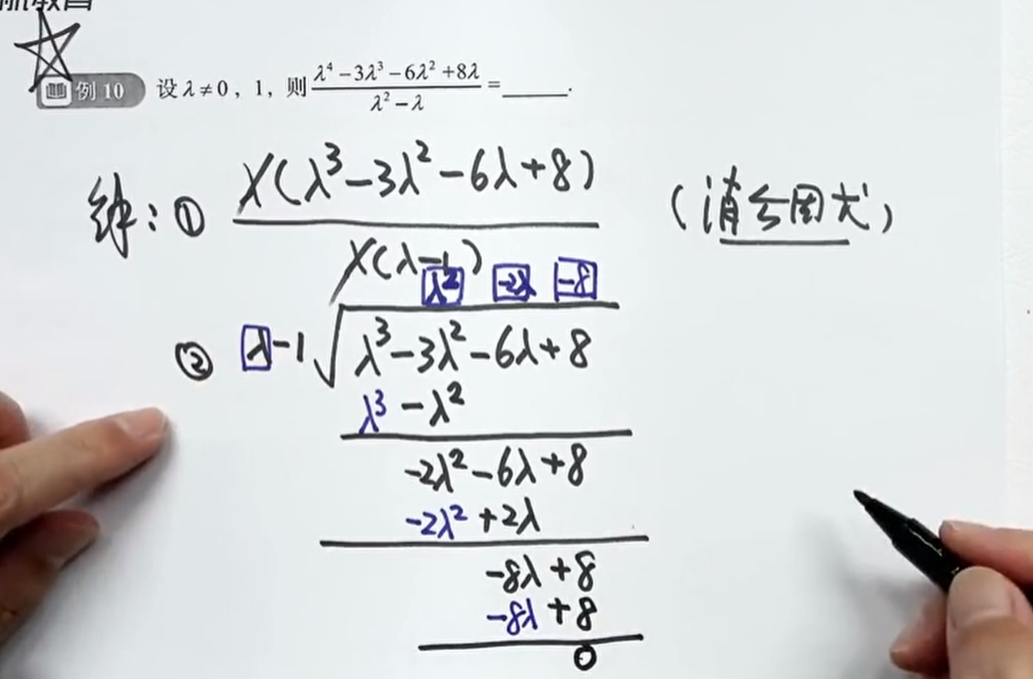 例 10 设 λ ≠ 0, 1, 则 (λ⁴ − 3λ³ − 6λ² + 8λ)/(λ² − λ) = ____.
解: ① λ(λ³ − 3λ² − 6λ + 8) (消公因式)
λ(λ − 1)
λ² −2λ −8
② λ − 1 √ λ³ − 3λ² − 6λ + 8
λ³ − λ²
−2λ² − 6λ + 8
−2λ² + 2λ
−8λ + 8
−8λ + 8
0